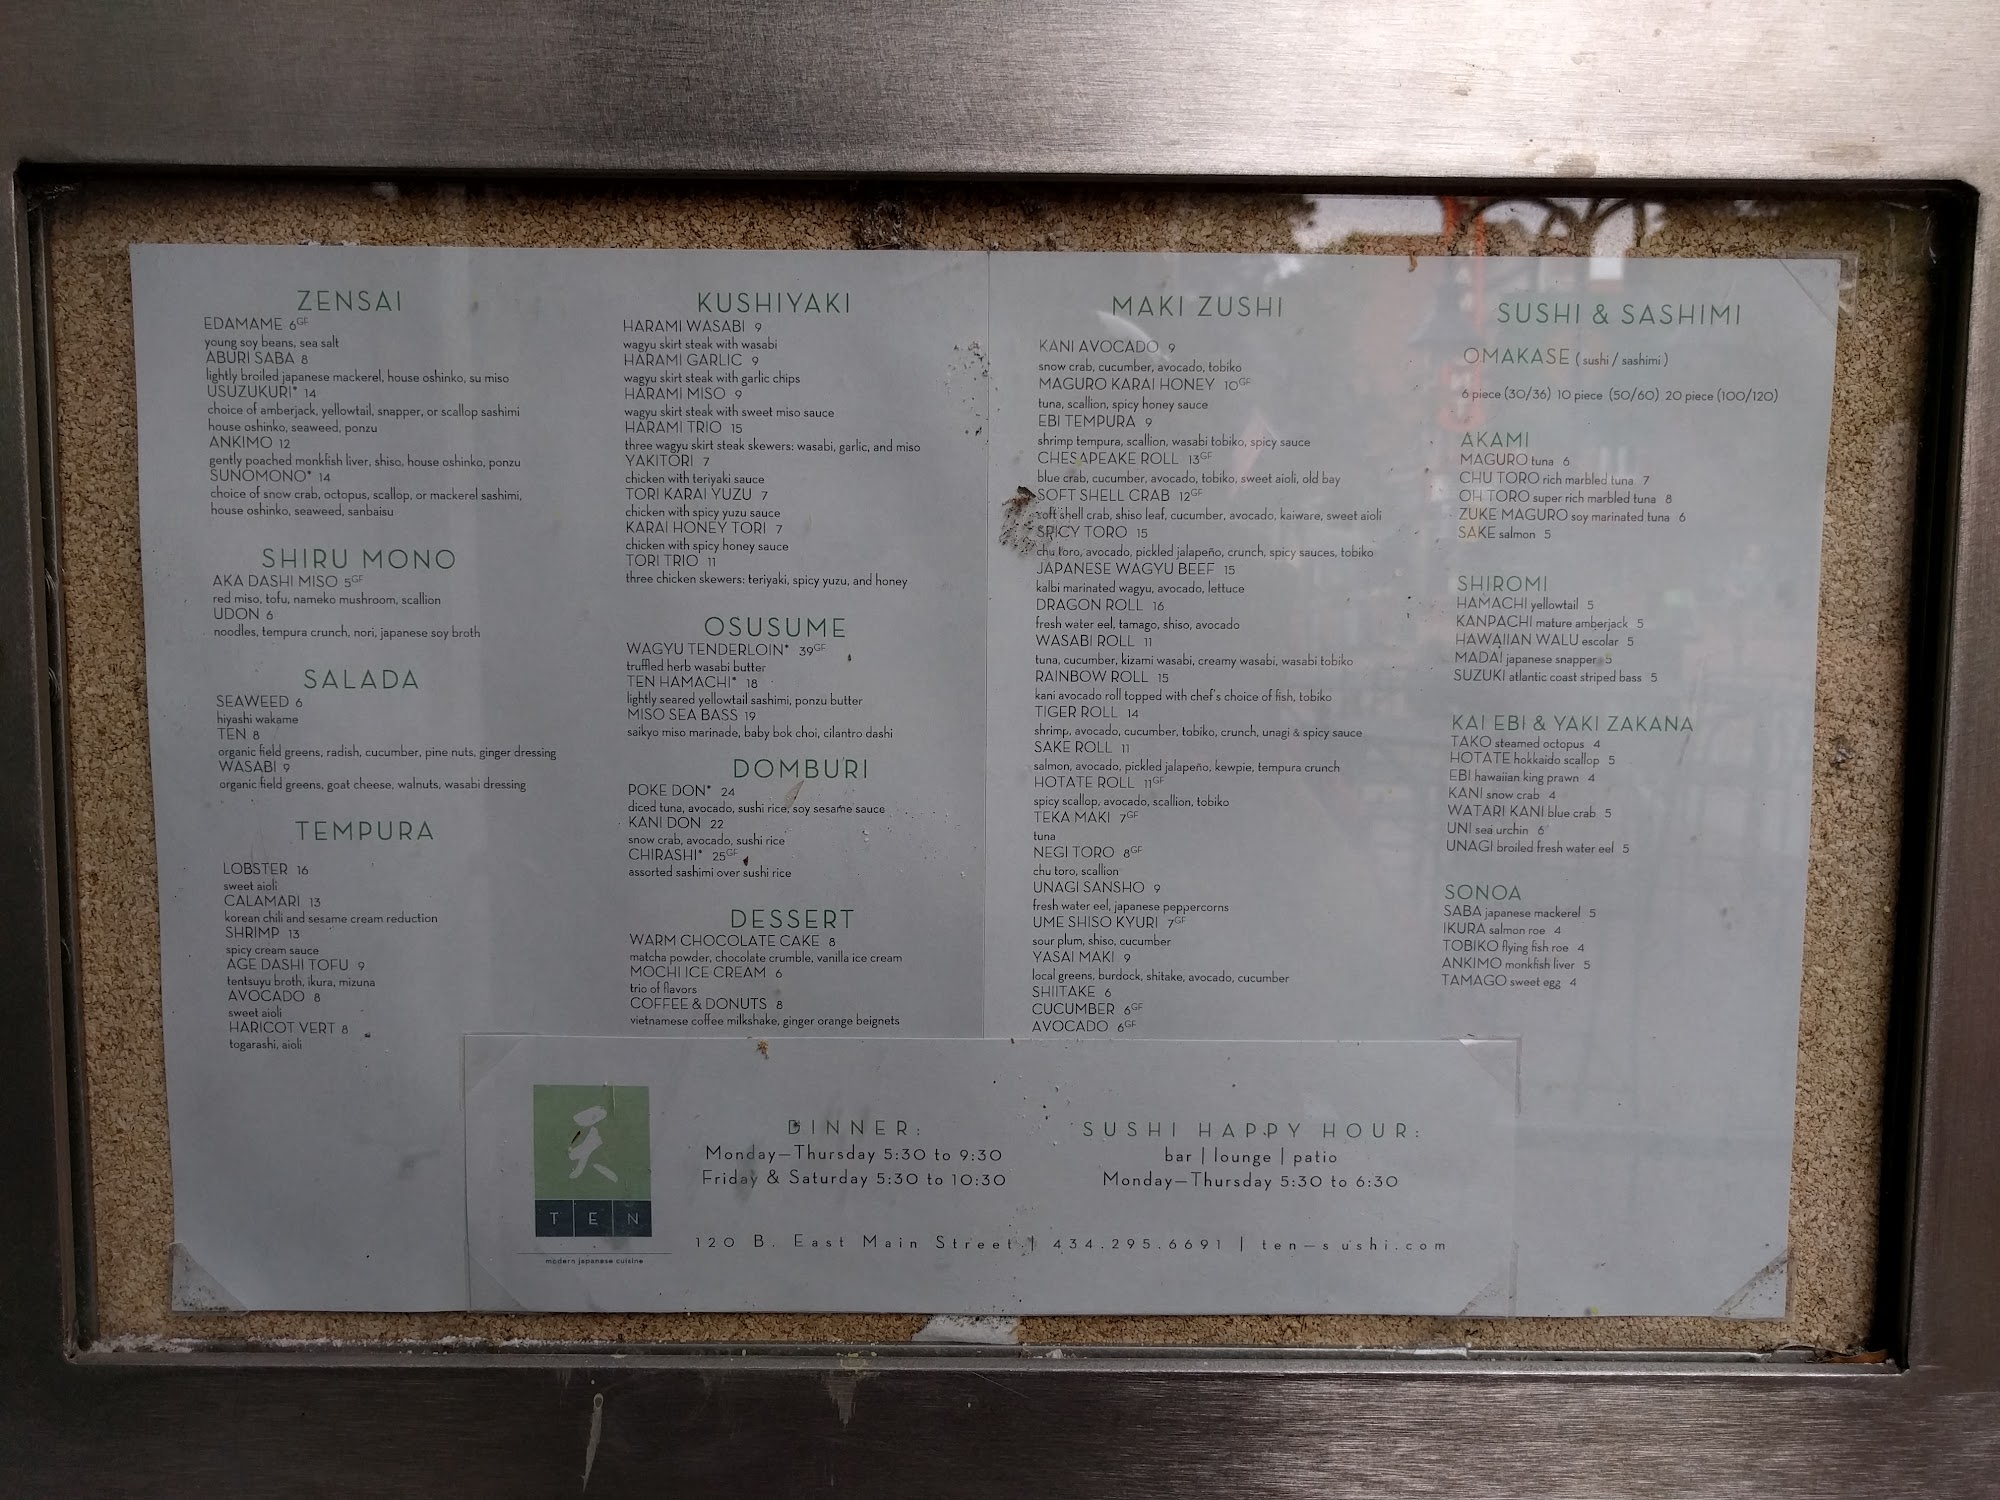 ZENSAI
EDAMAME 6GF
young soy beans, sea salt
ABURI SABA 8
lightly broiled japanese mackerel, house oshinko, su miso
USUZUKURI* 14
choice of amberjack, yellowtail, snapper, or scallop sashimi
house oshinko, seaweed, ponzu
ANKIMO 12
gently poached monkfish liver, shiso, house oshinko, ponzu
SUNOMONO* 14
choice of snow crab, octopus, scallop, or mackerel sashimi,
house oshinko, seaweed, sanbaisu
SHIRU MONO
AKA DASHI MISO 5GF
red miso, tofu, nameko mushroom, scallion
UDON 6
noodles, tempura crunch, nori, japanese soy broth
SALADA
SEAWEED 6
hiyashi wakame
TEN 8
organic field greens, radish, cucumber, pine nuts, ginger dressing
WASABI 9
organic field greens, goat cheese, walnuts, wasabi dressing
TEMPURA
LOBSTER 16
sweet aioli
CALAMARI 13
korean chili and sesame cream reduction
SHRIMP 13
spicy cream sauce
AGE DASHI TOFU 9
tentsuyu broth, ikura, mizuna
AVOCADO 8
sweet aioli
HARICOT VERT 8
togarashi, aioli
KUSHIYAKI
HARAMI WASABI 9
wagyu skirt steak with wasabi
HARAMI GARLIC 9
wagyu skirt steak with garlic chips
HARAMI MISO 9
wagyu skirt steak with sweet miso sauce
HARAMI TRIO 15
three wagyu skirt steak skewers: wasabi, garlic, and miso
YAKITORI 7
chicken with teriyaki sauce
TORI KARAI YUZU 7
chicken with spicy yuzu sauce
KARAI HONEY TORI 7
chicken with spicy honey sauce
TORI TRIO 11
three chicken skewers: teriyaki, spicy yuzu, and honey
OSUSUME
WAGYU TENDERLOIN* 39GF
truffled herb wasabi butter
TEN HAMACHI* 18
lightly seared yellowtail sashimi, ponzu butter
MISO SEA BASS 19
saikyo miso marinade, baby bok choi, cilantro dashi
DOMBURI
POKE DON* 24
diced tuna, avocado, sushi rice, soy sesame sauce
KANI DON 22
snow crab, avocado, sushi rice
CHIRASHI* 25GF
assorted sashimi over sushi rice
DESSERT
WARM CHOCOLATE CAKE 8
matcha powder, chocolate crumble, vanilla ice cream
MOCHI ICE CREAM 6
trio of flavors
COFFEE & DONUTS 8
vietnamese coffee milkshake, ginger orange beignets
MAKI ZUSHI
KANI AVOCADO 9
snow crab, cucumber, avocado, tobiko
MAGURO KARAI HONEY 10GF
tuna, scallion, spicy honey sauce
EBI TEMPURA 9
shrimp tempura, scallion, wasabi tobiko, spicy sauce
CHESAPEAKE ROLL 13GF
blue crab, cucumber, avocado, tobiko, sweet aioli, old bay
SOFT SHELL CRAB 12GF
soft shell crab, shiso leaf, cucumber, avocado, kaiware, sweet aioli
SPICY TORO 15
chu toro, avocado, pickled jalapeño, crunch, spicy sauces, tobiko
JAPANESE WAGYU BEEF 15
kalbi marinated wagyu, avocado, lettuce
DRAGON ROLL 16
fresh water eel, tamago, shiso, avocado
WASABI ROLL 11
tuna, cucumber, kizami wasabi, creamy wasabi, wasabi tobiko
RAINBOW ROLL 15
kani avocado roll topped with chef's choice of fish, tobiko
TIGER ROLL 14
shrimp, avocado, cucumber, tobiko, crunch, unagi & spicy sauce
SAKE ROLL 11
salmon, avocado, pickled jalapeño, kewpie, tempura crunch
HOTATE ROLL 11GF
spicy scallop, avocado, scallion, tobiko
TEKA MAKI 7GF
tuna
NEGI TORO 8GF
chu toro, scallion
UNAGI SANSHO 9
fresh water eel, japanese peppercorns
UME SHISO KYURI 7GF
sour plum, shiso, cucumber
YASAI MAKI 9
local greens, burdock, shitake, avocado, cucumber
SHIITAKE 6
CUCUMBER 6GF
AVOCADO 6GF
SUSHI & SASHIMI
OMAKASE ( sushi / sashimi )
6 piece (30/36) 10 piece (50/60) 20 piece (100/120)
AKAMI
MAGURO tuna 6
CHU TORO rich marbled tuna 7
OH TORO super rich marbled tuna 8
ZUKE MAGURO soy marinated tuna 6
SAKE salmon 5
SHIROMI
HAMACHI yellowtail 5
KANPACHI mature amberjack 5
HAWAIIAN WALU escolar 5
MADAI japanese snapper 5
SUZUKI atlantic coast striped bass 5
KAI EBI & YAKI ZAKANA
TAKO steamed octopus 4
HOTATE hokkaido scallop 5
EBI hawaiian king prawn 4
KANI snow crab 4
WATARI KANI blue crab 5
UNI sea urchin 6
UNAGI broiled fresh water eel 5
SONOA
SABA japanese mackerel 5
IKURA salmon roe 4
TOBIKO flying fish roe 4
ANKIMO monkfish liver 5
TAMAGO sweet egg 4
天
TEN
modern japanese cuisine
DINNER:
Monday—Thursday 5:30 to 9:30
Friday & Saturday 5:30 to 10:30
SUSHI HAPPY HOUR:
bar | lounge | patio
Monday—Thursday 5:30 to 6:30
120 B. East Main Street | 434.295.6691 | ten-sushi.com